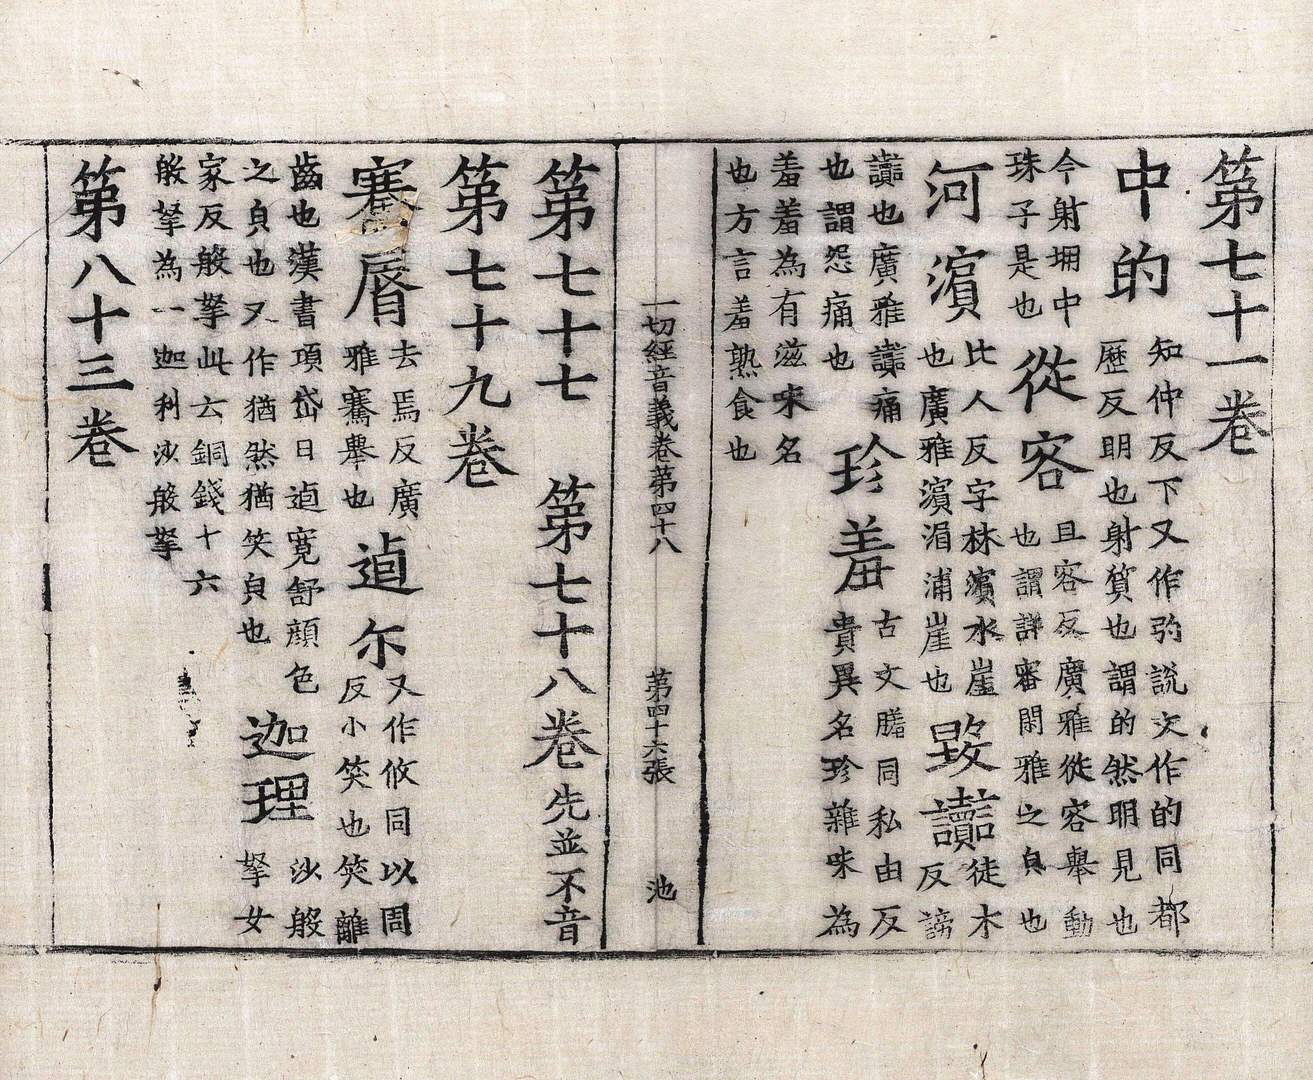 第七十一卷
中的
知仲反下又作𢏺說文作的同都
歷反明也射質也謂的然明見也
今射堋中
珠子是也
從容
且容反廣雅從容舉動
也謂詳審閑雅之皃也
河濱
比人反字林濱水崖
也廣雅濱湄浦崖也
讟
徒木
反謗
讟也廣雅讟痛
也謂怨痛也
珍羞
古文膳同私由反
貴異名珍雜味為
羞羞為有滋味名
也方言羞熟食也
一切經音義卷第四十八
第四十六張
池
第七十七
第七十八卷先並不音
第七十九卷
褰脣
去焉反廣
雅騫舉也
逌尒
又作攸同以周
反小笑也笑離
齒也漢書項岱曰逌寬舒顏色
之皃也又作猶然猶笑皃也
迦理
沙般
拏女
家反般拏此云銅錢十六
般拏為一迦利沙般拏
第八十三卷